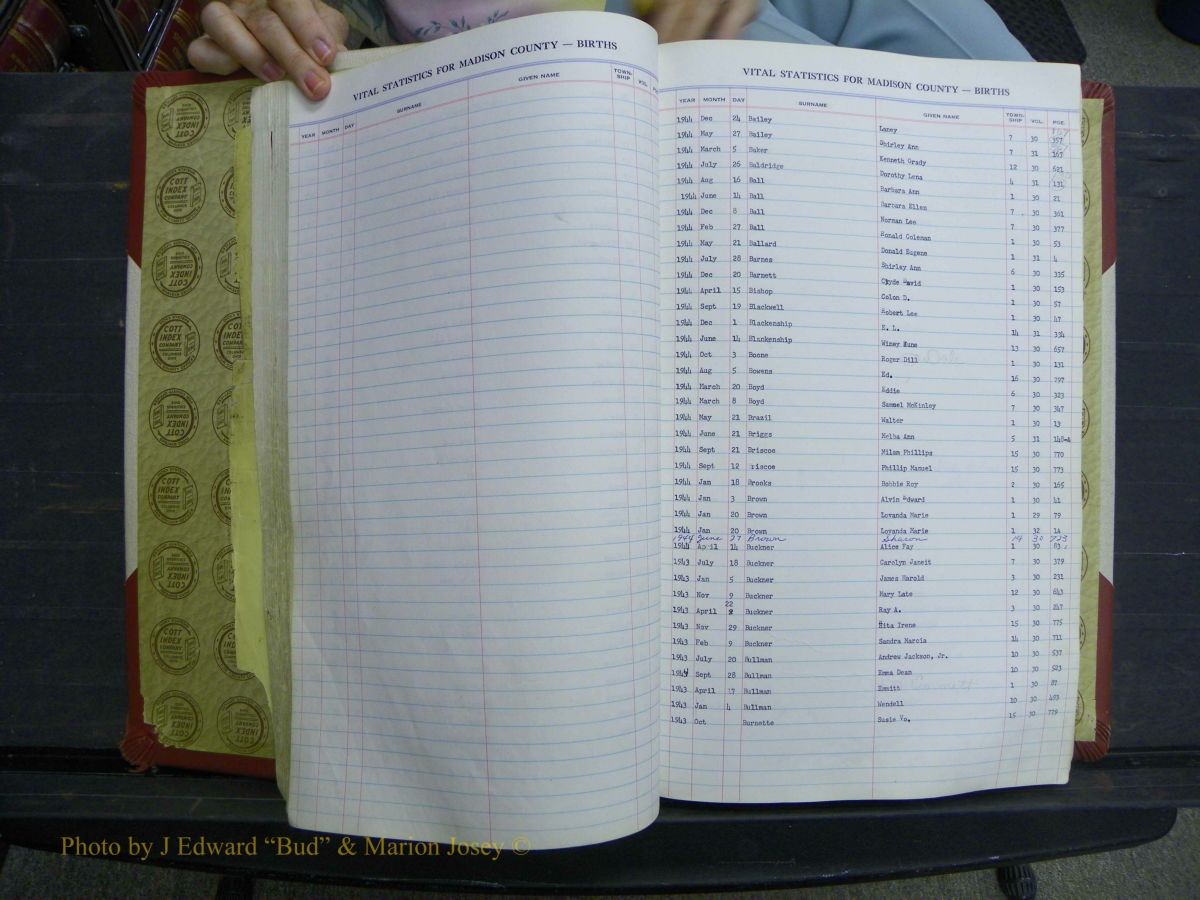 VITAL STATISTICS FOR MADISON COUNTY — BIRTHS
YEAR MONTH DAY SURNAME GIVEN NAME TOWN-SHIP VOL.
VITAL STATISTICS FOR MADISON COUNTY — BIRTHS
YEAR MONTH DAY SURNAME GIVEN NAME TOWN-SHIP VOL. PGE.
1944 Dec 24 Bailey Laney 7 30 357
1944 May 27 Bailey Shirley Ann 7 31 167
1944 March 5 Baker Kenneth Grady 12 30 621
1944 July 26 Baldridge Dorothy Lena 4 31 131
1944 Aug 16 Ball Barbara Ann 1 30 21
1944 June 14 Ball Barbara Ellen 7 30 361
1944 Dec 8 Ball Norman Lee 7 30 377
1944 Feb 27 Ball Ronald Coleman 1 30 53
1944 May 21 Ballard Donald Eugene 1 31 4
1944 July 28 Barnes Shirley Ann 6 30 335
1944 Dec 20 Barnett Clyde David 1 30 153
1944 April 15 Bishop Colon D. 1 30 57
1944 Sept 19 Blackwell Robert Lee 1 30 47
1944 Dec 1 Blackenship E. L. 14 31 334
1944 June 14 Blankenship Winey 13 30 657
1944 Oct 3 Boone Roger Dill Dale 1 30 131
1944 Aug 5 Bowens Ed. 16 30 797
1944 March 20 Boyd Eddie 6 30 323
1944 March 8 Boyd Samuel McKinley 7 30 347
1944 May 21 Brazil Walter 1 30 13
1944 June 21 Briggs Melba Ann 5 31 148-A
1944 Sept 21 Briscoe Milom Phillips 15 30 770
1944 Sept 12 riscoe Phillip Manuel 15 30 773
1944 Jan 18 Brooks Bobbie Roy 2 30 165
1944 Jan 3 Brown Alvin Edward 1 30 41
1944 Jan 20 Brown Lovanda Marie 1 29 79
1944 Jan 20 Brown Lovanda Marie 1 32 1A
1944 June 27 Brown Sharon 14 30 723
1944 April 14 Buckner Alice Fay 1 30 83
1943 July 18 Buckner Carolyn Janeit 7 30 379
1943 Jan 5 Buckner James Harold 3 30 231
1943 Nov 9 Buckner Mary Late 12 30 643
22
1943 April 8 Buckner Ray A. 3 30 247
1943 Nov 29 Buckner Rita Irene 15 30 775
1943 Feb 9 Buckner Sandra Marcia 14 30 711
1943 July 20 Bullman Andrew Jackson, Jr. 10 30 537
1944 Sept 28 Bullman Emma Dean 10 30 523
1943 April 17 Bullman Emmitt 1 30 87
1943 Jan 4 Bullman Wendell 10 30 493
1943 Oct Burnette Susie Vo. 15 30 779
COTT INDEX COMPANY COLUMBUS OHIO
Photo by J Edward “Bud” & Marion Josey ©